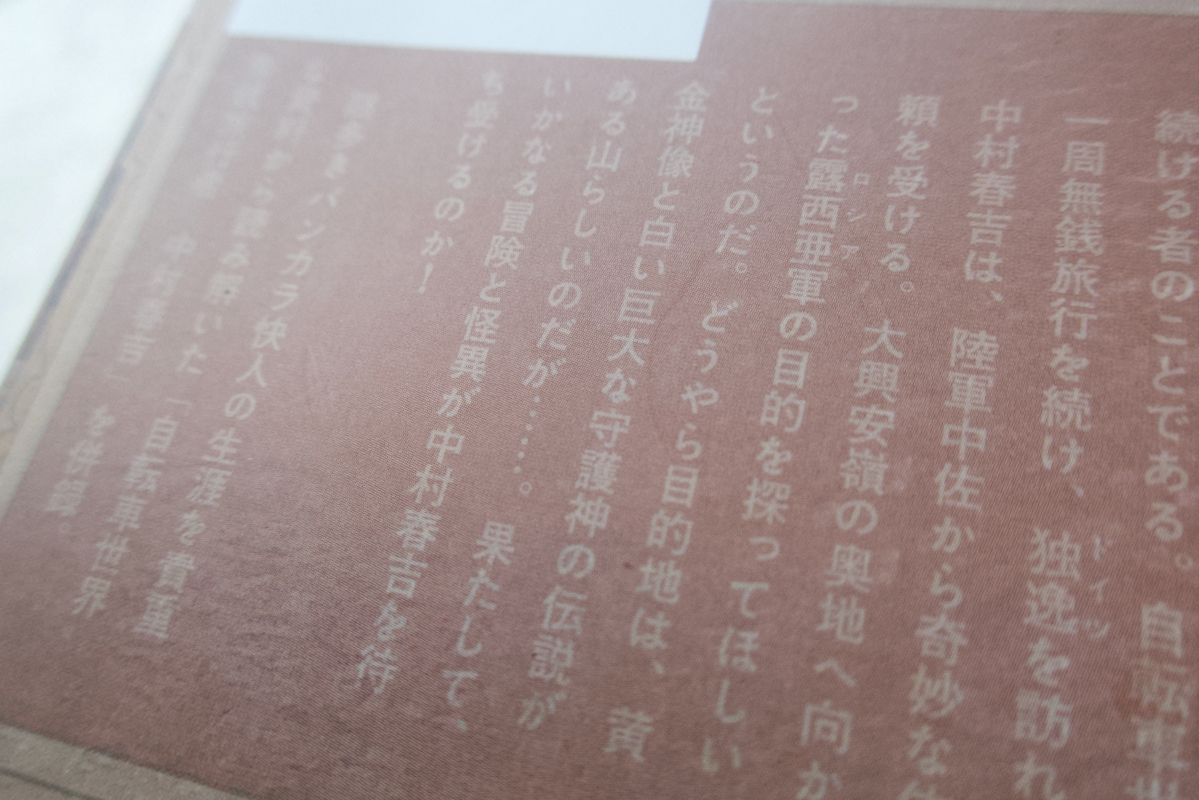 続ける者のことである。自転車世
一周無銭旅行を続け、独逸を訪れ
ドイツ
中村春吉は、陸軍中佐から奇妙な
頼を受ける。大興安嶺の奥地へ向か
った露西亜軍の目的を探ってほしい
ロシア
というのだ。どうやら目的地は、黄
金神像と白い巨大な守護神の伝説が
ある山らしいのだが……。果たして、
いかなる冒険と怪異が中村春吉を待
ち受けるのか!
バンカラ快人の生涯を貴重
から読み解いた「自転車世界
中村春吉」を併録